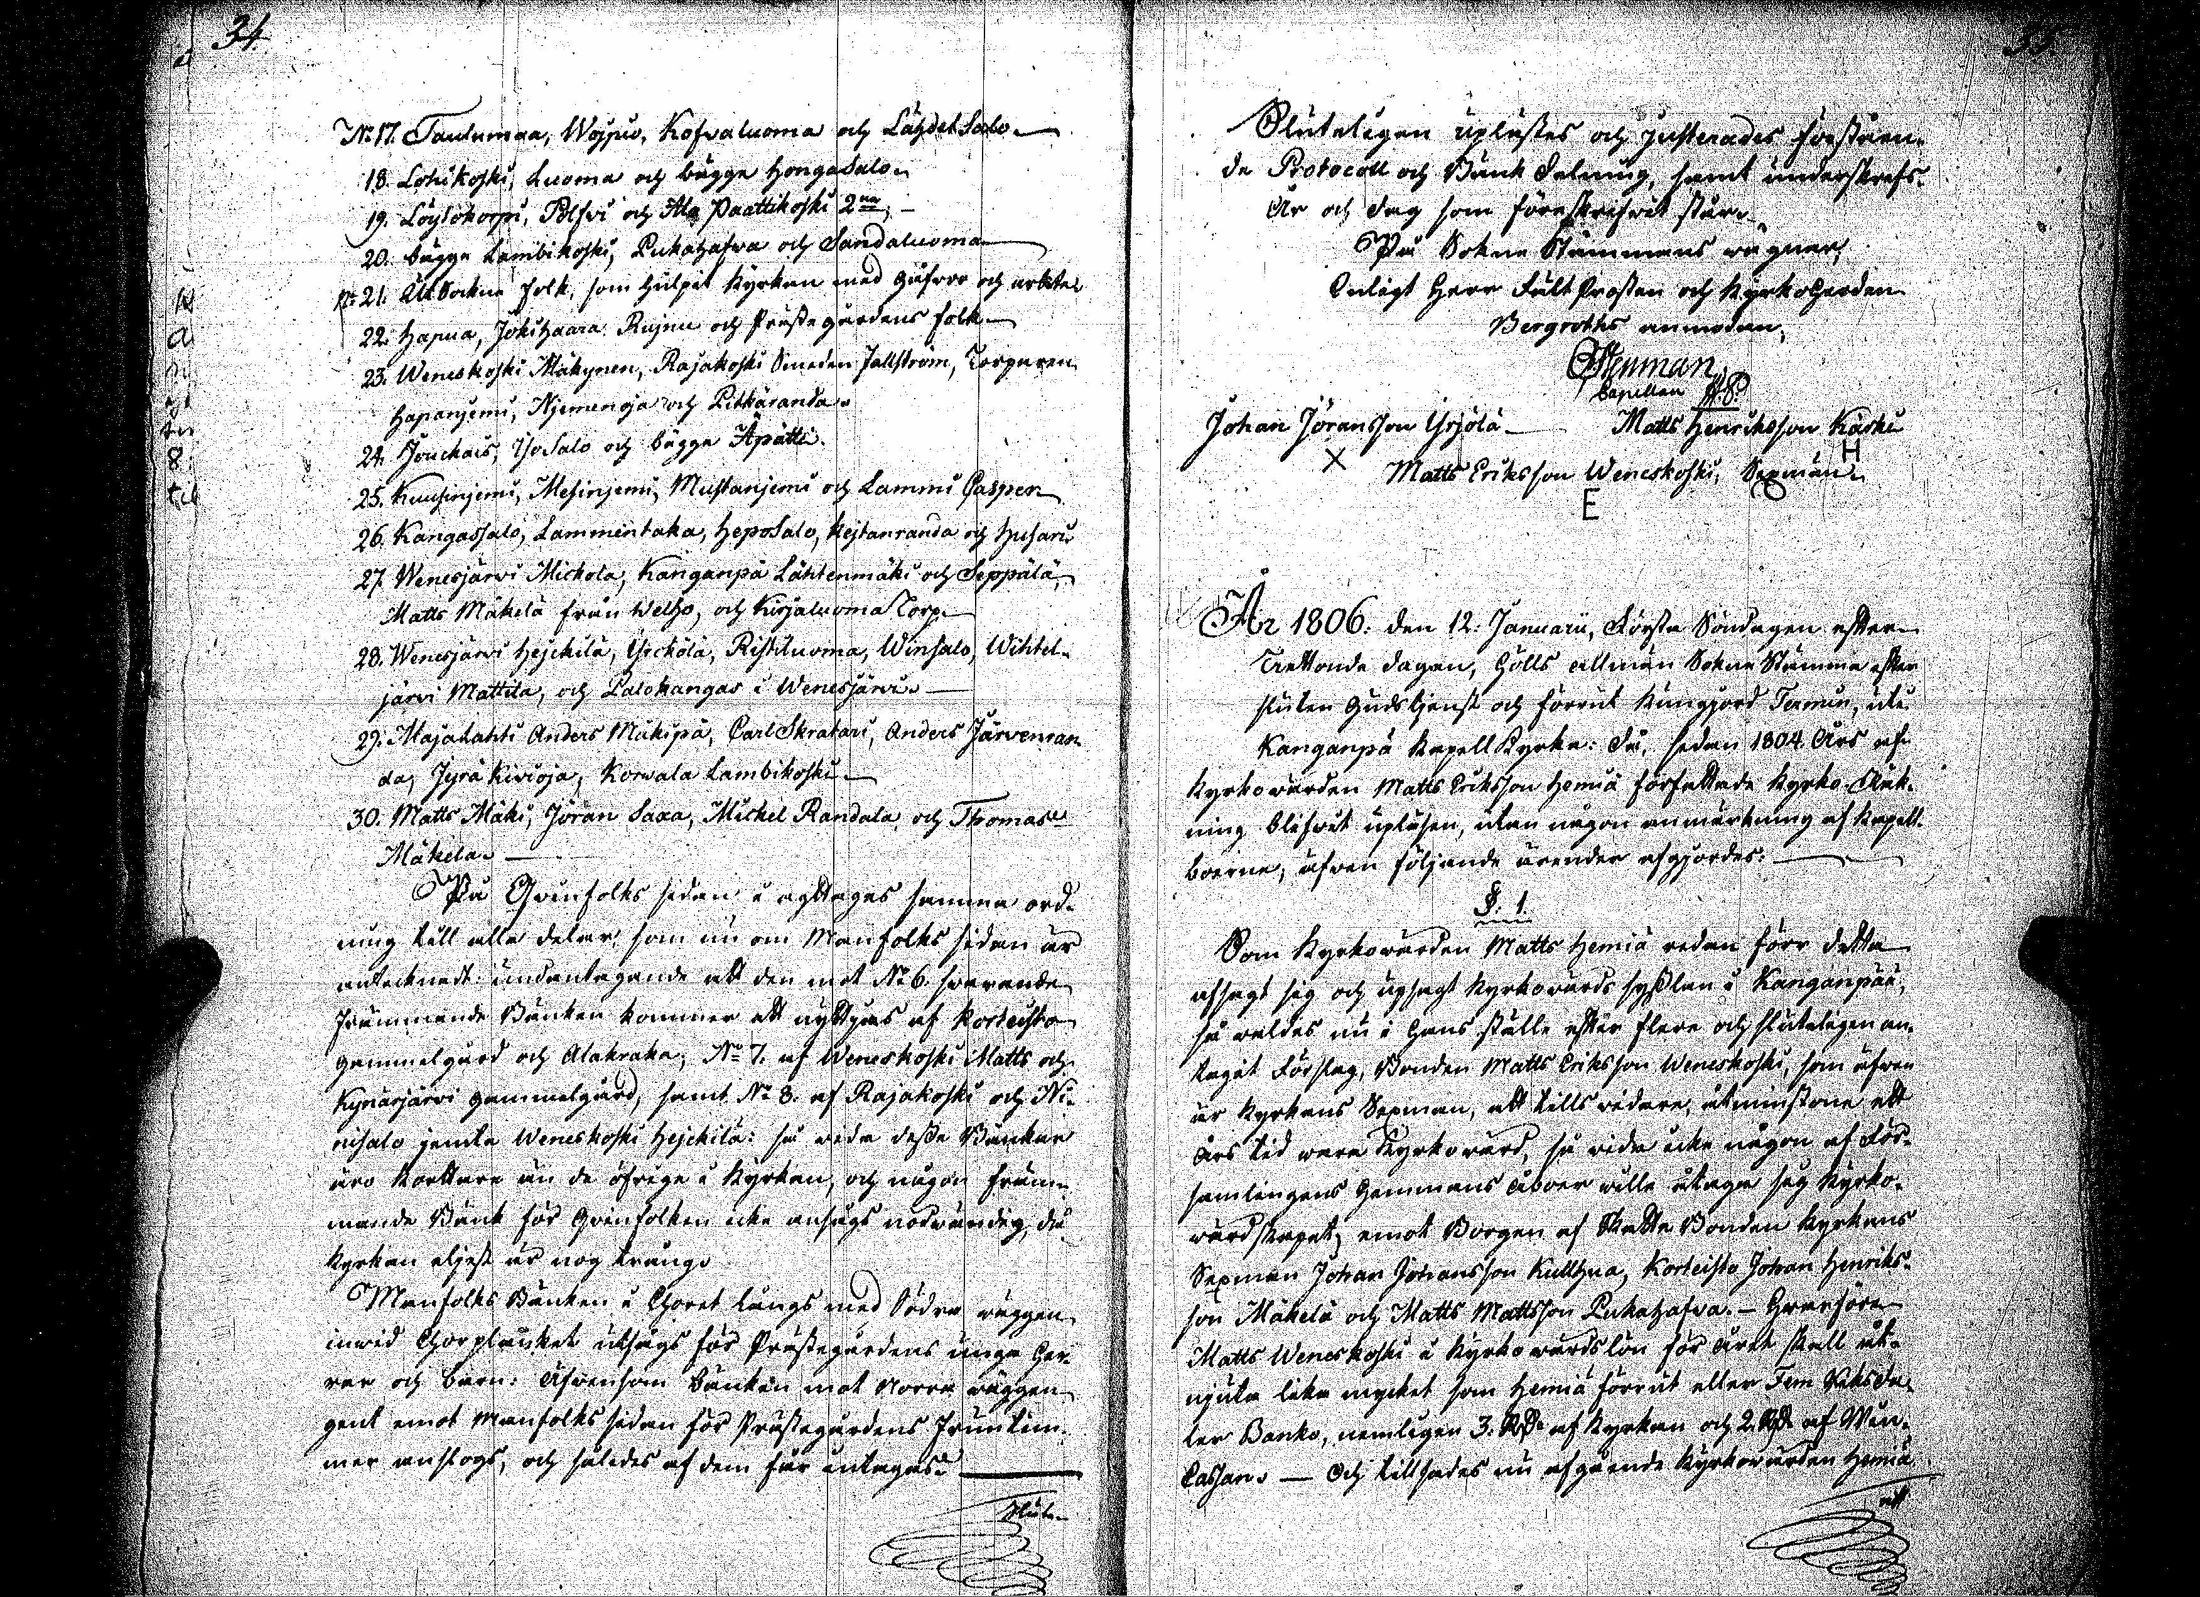 34
No 17. Taulumaa, Wojpio, Kosvaluoma och LähdetSalo.
18. Lohikoski, Luoma och bägge HongaSalo.
19. Löytökorpi, Pålsvi och Ala Paattikoski 2ne,
20. bägge Lambikoski, Pukahafwa och Sandaluoma
No 21. UtSockne folk, som hulpit Kyrkan med gåfvor och arbete
22. Hapua, Jokihaara Rujnu och Prästegårdens folk.
23. Weneskoski Mäkynen, Rajakoski Smeden Jallström, Torparen
Hapanjemi, Njemenoja och Pitkäranda.
24. Jouchais, IsoSalo och bägge Äpätti.
25. Kuusinjemi, Mesinjemi, Mustanjemi och Lammi Casper
26. Kangassalo, Lammentaka, HepoSalo, Kejtanranda och Husari
27. Wenesjärvi Mickola, Kanganpä Lähtenmäki och Seppälä,
Matts Mäkelä från Welho, och Kirjaluoma Torp.
28. Wenesjärvi Hejckilä, Yrckölä, Ristiluoma, Winsalo, Wihtel-
järvi Mattila, och Palokangas i Wenesjärvi.
29. Majalahti Anders Mäkipä, Carl Skratari, Anders Järvenran-
da, Jyrä Kivioja, Korvala Lambikoski.
30. Matts Mäki, Jöran Saxa, Mickel Randala, och Thomas
Mäkelä.
På Qvinfolks sidan i agttages samma ord-
ning till alla delar, som nu om Manfolks sidan är
antecknadt: undantagande att den mot No 6. svarande
främmande Bänken kommer att nyttjas af Korteisto
gammelgård och Alakraka; No 7. af Weneskoski Matts och
Kynäsjärvi gammelgård, samt No 8. af Rajakoski och Ni-
nisalo jemte Weneskoski Hejckilä: så vida desse Bänkar
äro kortare än de öfrige i Kyrkan, och någon främ-
mande Bänk för Qvinfolken icke ansågs nödvändig, då
Kyrkan eljest är nog trång.
Manfolks Bänken i Choret längs med Södra väggen
invid Chorskranket utsågs för Prästegårdens unga Her-
rar och barn: Äfvensom bänken mot Norra väggen
gent emot Manfolks sidan för Prästegårdens Fruntim-
mer anslogs, och således af dem får intagas.
Slute-
35
Sluteligen uplästes och justerades förståen-
de Protocoll och Bänk Delning, samt underskrefs.
År och dag som föreskrifvit står.
På Sokne Stämmans vägnar,
Enligt Herr Fält Prosten och KyrkoHerden
Bergroths anmodan,
Stenman,
Capellan
Johan Jöransson Yrjölä
Matts Henriksson Käski
X
H
Matts Eriksson Weneskoski, Sexman.
E
År 1806. den 12. Januarii, Första Söndagen efter
Trettonde dagen, hölls allmän Sokne Stämma efter
sluten Gudstjenst och förrut kungjord Termin, uti
Kanganpä Kapell Kyrka: Då, sedan 1804 Års af
Kyrkovärden Matts Eriksson Hemiä författade Kyrko-Räk-
ning blifvit upläsen, utan någon anmärkning af Kapell-
boerne, äfven följande ärender afgjordes:
§. 1.
Som Kyrkovärden Matts Hemiä redan förr detta
afsagt sig och upsagt Kyrkovärds sysslan i Kanganpää,
så valdes nu i hans ställe efter flere och sluteligen an-
tagit Förslag, Bonden Matts Eriksson Weneskoski, som äfven
är Kyrkans Sexman, att tills vidare, åtminstone ett
års tid vara Kyrkovärd, så vida icke någon af För-
samlingens Hemmans åboer ville åtaga sig Kyrko-
värdskapet, emot Borgen af Skatte Bonden Kyrkans
Sexman Johan Johansson Kullhua, Korteisto Johan Henriks-
son Mäkelä och Matts Mattsson Pukahafwa. — Hvarföre
Matts Weneskoski i Kyrkovärdslön för året skall åt-
njuta lika mycket som Hemiä förrut eller Fem Riksda-
ler Banko, nemligen 3. Rd af Kyrkan och 2. Rd af Win-
Cassan. — Och tillsades nu afgående Kyrkovärden Hemiä
att